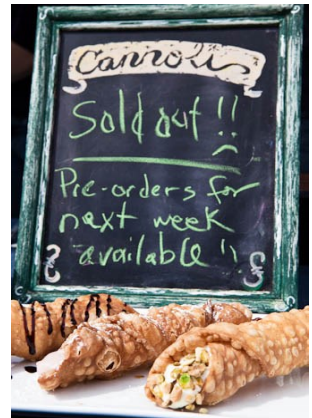 Cannolis
Sold out !!
Pre-orders for
next week
available !!